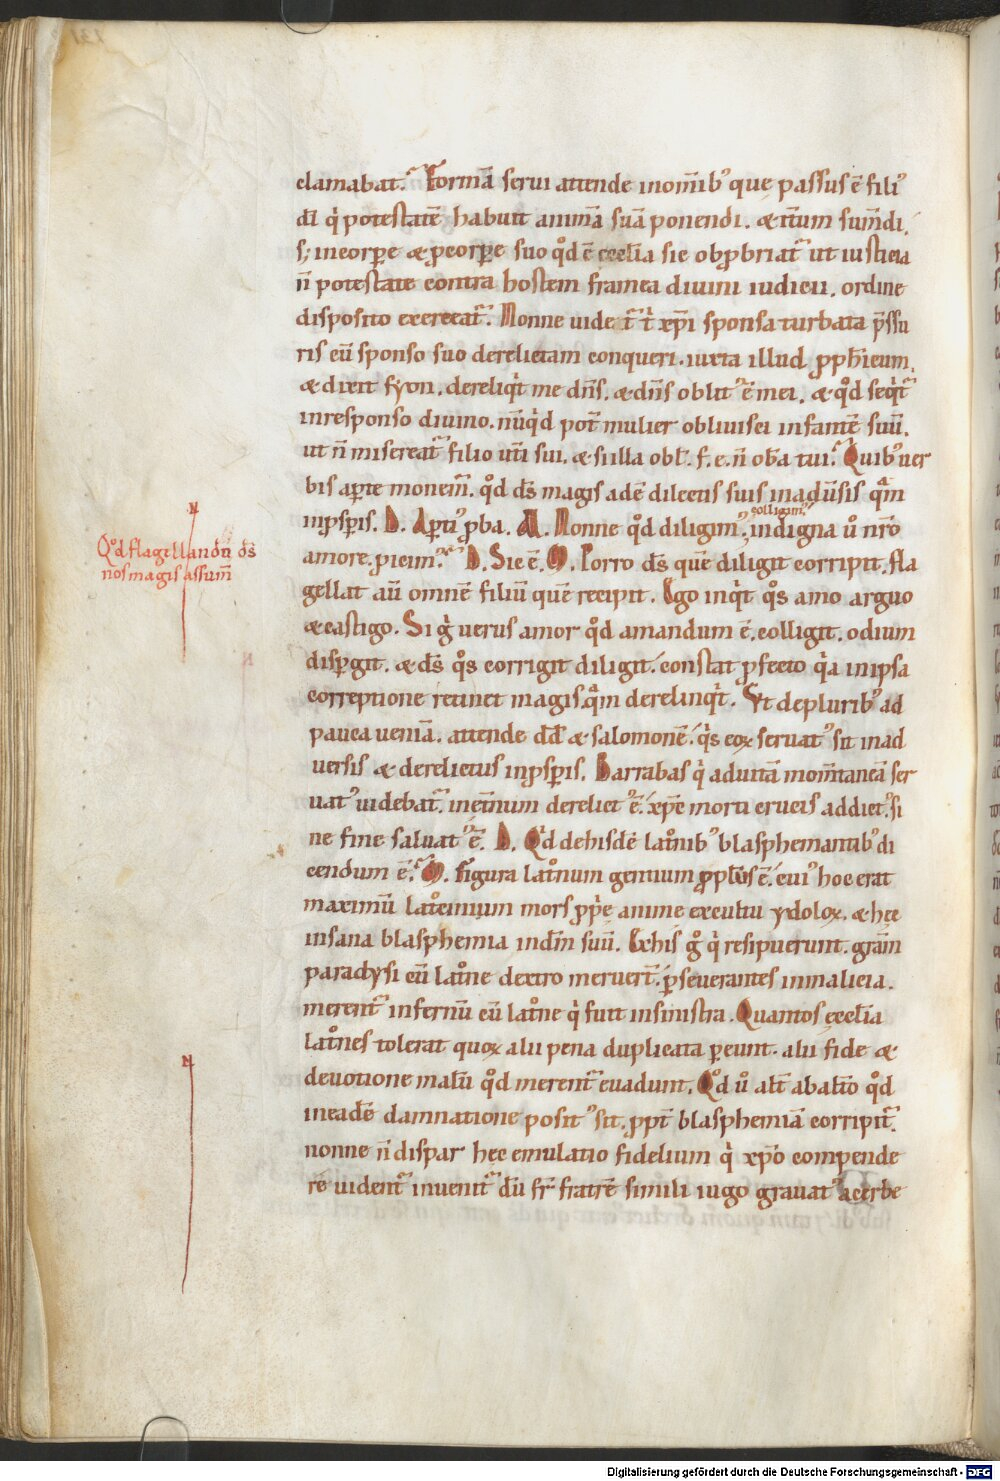 clamabat. Formā serui attende inomīb᾽ que passus ē fili᾽
dī q̇ potestatē habuit animā suā ponendi. & iťum sum̄di,
s; incorꝑe & ꝑcorꝑe suo qd̊ ē ęccłia sic obꝓbriat᷑ ut iusticia
n̄ potestate contra hostem framea diuini iudicii, ordine
disposito exerceat᷑. Nonne uide t᷑ t̍ xp̄i sponsa turbata p̄ssu
ris cū sponso suo derelictam conqueri. iuxta illud ꝓph̄icum,
& dixit syon. dereliq̍t me dn̄s, & dn̄s oblit᾽ ē mei, & qd̊ seq̍t᷑
inresponso diuino. nūq̍d poť mulier obliuisci infantē suū.
ut n̄ misereat᷑ filio uťi sui, & si illa obł. s. e. n̄ obł̄a tui. Quib᾽ uer
bis aꝑte monem̄. qd̊ dš magis adē dilectis suis inaduˀsis q̄m
inꝓsꝑis. D. Aꝑti᾽ ꝓba. M. Nonne qd̊ diligim᾽, colligim᾽, indigna ů nr̄o
amore. ꝓicim᾽. D. Sic ē. M. Porro dš quē diligit corripit. fla
gellat aū omnē filiū quē recipit. Ego inq̍t q̊s amo arguo
& castigo. Si g̍ uerus amor qd̊ amandum ē. colligit. odium
disꝑgit. & dš q̊s corrigit diligit. constat ꝓfecto q̍a inipsa
correptione retinet magis.q̄m derelinq̍t. Vt deplurib᾽ ad
pauca ueniā. attende dd̄ & salomonē. q̍s eoꝝ seruat᾽ sit inad
uersis & derelictus inꝓsꝑis. Barrabas q̍ aduitā mom̄taneā ser
uat᾽ uidebat᷑. inet̄num derelict᾽ ē. xp̄c morti crucis addict᾽ si
ne fine saluat᾽ ē. D. Qd̍ dehisdē lat̊nib᾽ blasphemantib᾽ di
cendum ē. M. figura lat̊num gentium ꝓpłus ē. cui᾽ hoc erat
maximū lat̊cinium mors ꝓpe anime excultu ydoloꝝ, & hęc
insana blasphemia indm̄ suū. Exhis g̊ q̍ resipuerunt. gr̄am
paradysi cū lat̊ne dextro meruert̄. ꝑseuerantes inmalicia.
merent᷑ infernū cū lat̊ne q̍ fuit insinistra. Quantos ęccłia
lat̊nes tolerat quoꝝ alii pena duplicata ꝑeunt. alii fide &
deuotione malū qd̊ merent᷑ euadunt. Qd̊ ů alť abalťo qd̊
ineadē damnatione posit᾽ sit. ꝓpť blasphemiā corripit᷑.
nonne n̄ dispar hęc emulatio fidelium q̍ xp̄o compende
re uident᷑ inuenit᷑ dū fr̄ fratrē simili iugo grauat᾽ acerbe
Qd̊ flagellandū dš
nos magis assum̄